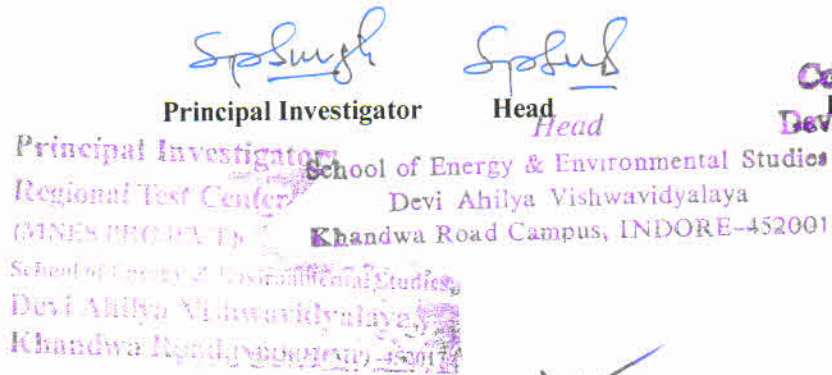 SpSingh SpSingh
Principal Investigator Head
Head
School of Energy & Environmental Studies
Devi Ahilya Vishwavidyalaya
Khandwa Road Campus, INDORE-452001
Principal Investigator
Regional Test Center
(MNES PROJECT)
School of Energy & Environmental Studies
Devi Ahilya Vishwavidyalaya
Khandwa Road,
Co
Dev